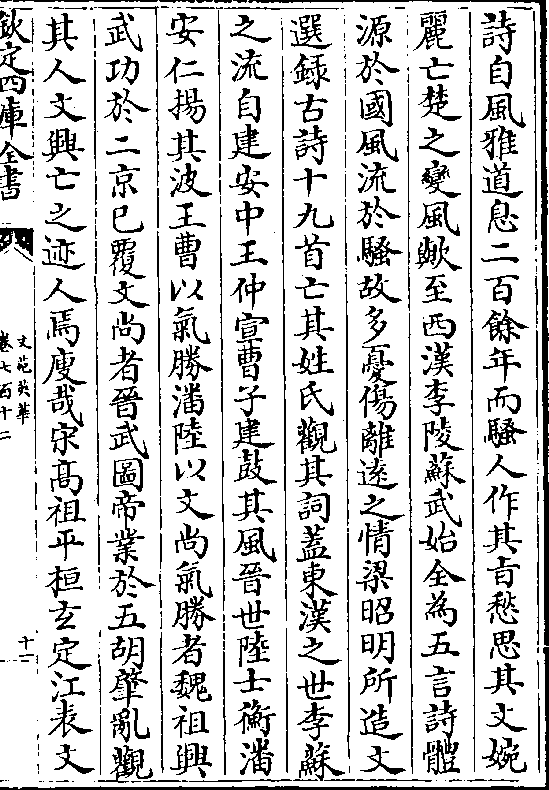 詩自風雅道息二百餘年而騷人作其㫖愁思其文婉
麗亡楚之變風歟至西漢李陵蘇武始全為五言詩體
源於國風流於騷故多憂傷離逺之情梁昭明所造文
選録古詩十九首亡其姓氏觀其詞蓋東漢之世李蘇
之流自建安中王仲宣曹子建鼓其風晉世陸士衡潘
安仁揚其波王曹以氣勝潘陸以文尚氣勝者魏祖興
武功於二京已覆文尚者晉武圖帝業於五胡肇亂觀
其人文興亡之迹人焉廋哉宋髙祖平桓𤣥定江表文
欽定四庫全書
文苑英華
卷七百十二
十一